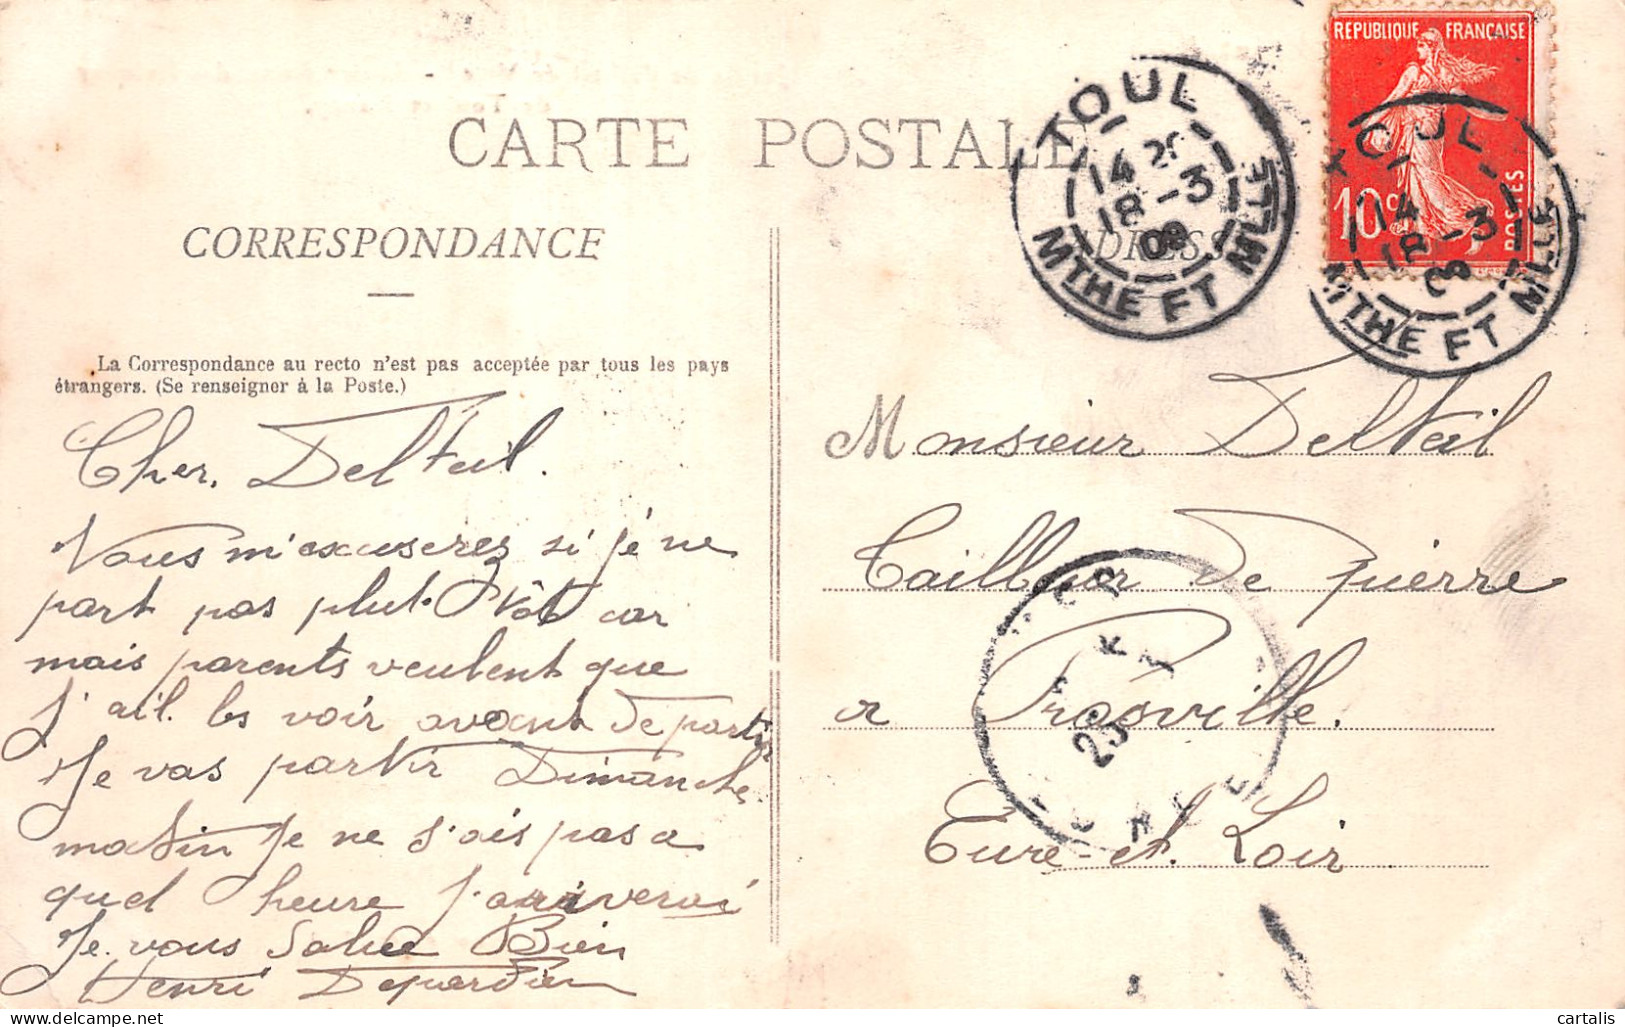 CARTE POSTALE
CORRESPONDANCE
La Correspondance au recto n'est pas acceptée par tous les pays
étrangers. (Se renseigner à la Poste.)
Cher. Delteil.
Vous m'excuserez si je ne
part pas plut. Vôt car
mais parents veulent que
j'ail. les voir avant de partir
Je vas partir Dimanche
matin Je ne s'ais pas a
quel heure j'ariverai
Je vous Salue Bien
Henri Depardieu
REPUBLIQUE FRANÇAISE
10c
POSTES
TOUL
14 20
18-3
09
MTHE ET MLLE
TOUL
14
18-3
09
MTHE ET MLLE
ADRESSE
Monsieur Delteil
Tailleur de Pierre
a Prasville.
Eure-et. Loir
25
delcampe.net
cartalis